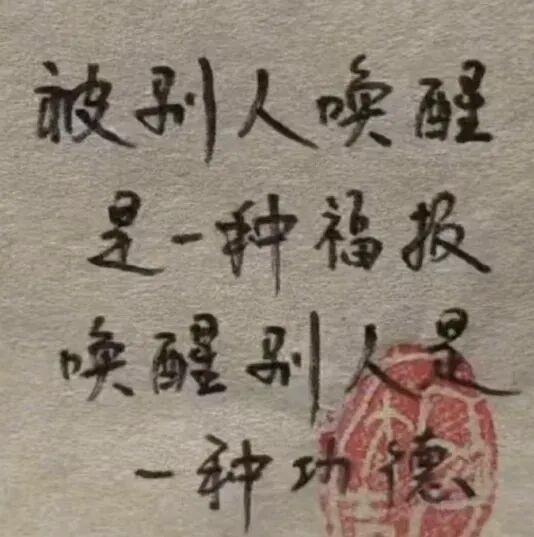 被别人唤醒
是一种福报
唤醒别人是
一种功德